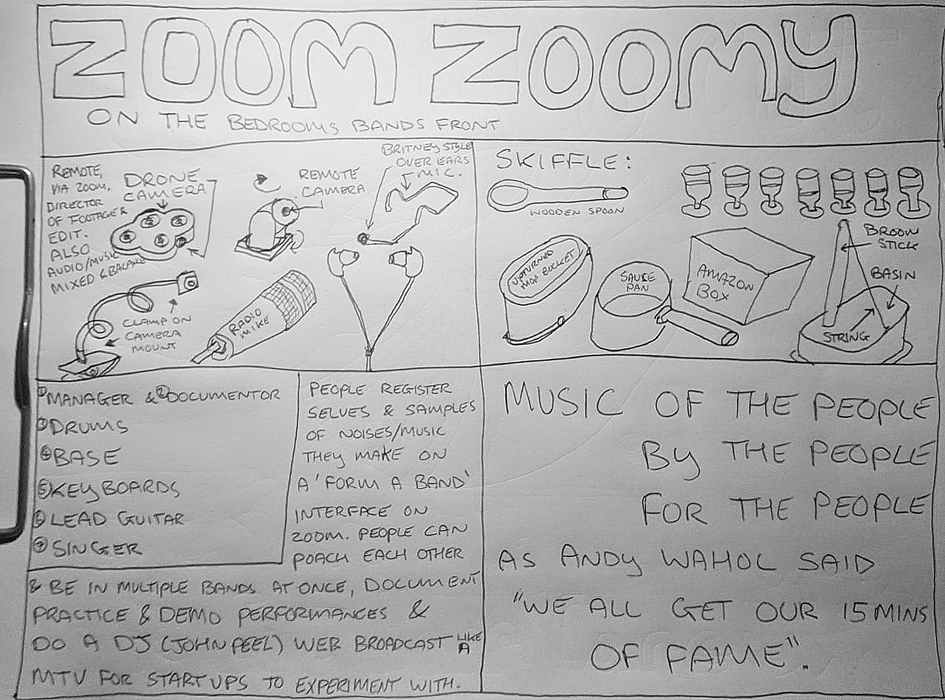 ZOOM ZOOMY
ON THE BEDROOMS BANDS FRONT
REMOTE,
VIA ZOOM,
DIRECTOR
OF FOOTAGE &
EDIT.
ALSO
AUDIO/MUSIC
MIXED & BALANCED
DRONE
CAMERA
REMOTE
CAMERA
BRITNEY STYLE
OVER EARS
MIC.
CLAMP ON
CAMERA
MOUNT
RADIO
MIKE
SKIFFLE:
WOODEN SPOON
UPTURNED
MOP BUCKET
SAUSE
PAN
AMAZON
BOX
BROOM
STICK
BASIN
STRING
① MANAGER & ② DOCUMENTOR
③ DRUMS
④ BASE
⑤ KEYBOARDS
⑥ LEAD GUITAR
⑦ SINGER
PEOPLE REGISTER
SELVES & SAMPLES
OF NOISES/MUSIC
THEY MAKE ON
A 'FORM A BAND'
INTERFACE ON
ZOOM. PEOPLE CAN
POACH EACH OTHER
& BE IN MULTIPLE BANDS AT ONCE, DOCUMENT
PRACTICE & DEMO PERFORMANCES &
DO A DJ (JOHN PEEL) WEB BROADCAST LIKE A
MTV FOR START UPS TO EXPERIMENT WITH.
MUSIC OF THE PEOPLE
BY THE PEOPLE
FOR THE PEOPLE
AS ANDY WAHOL SAID
"WE ALL GET OUR 15 MINS
OF FAME".